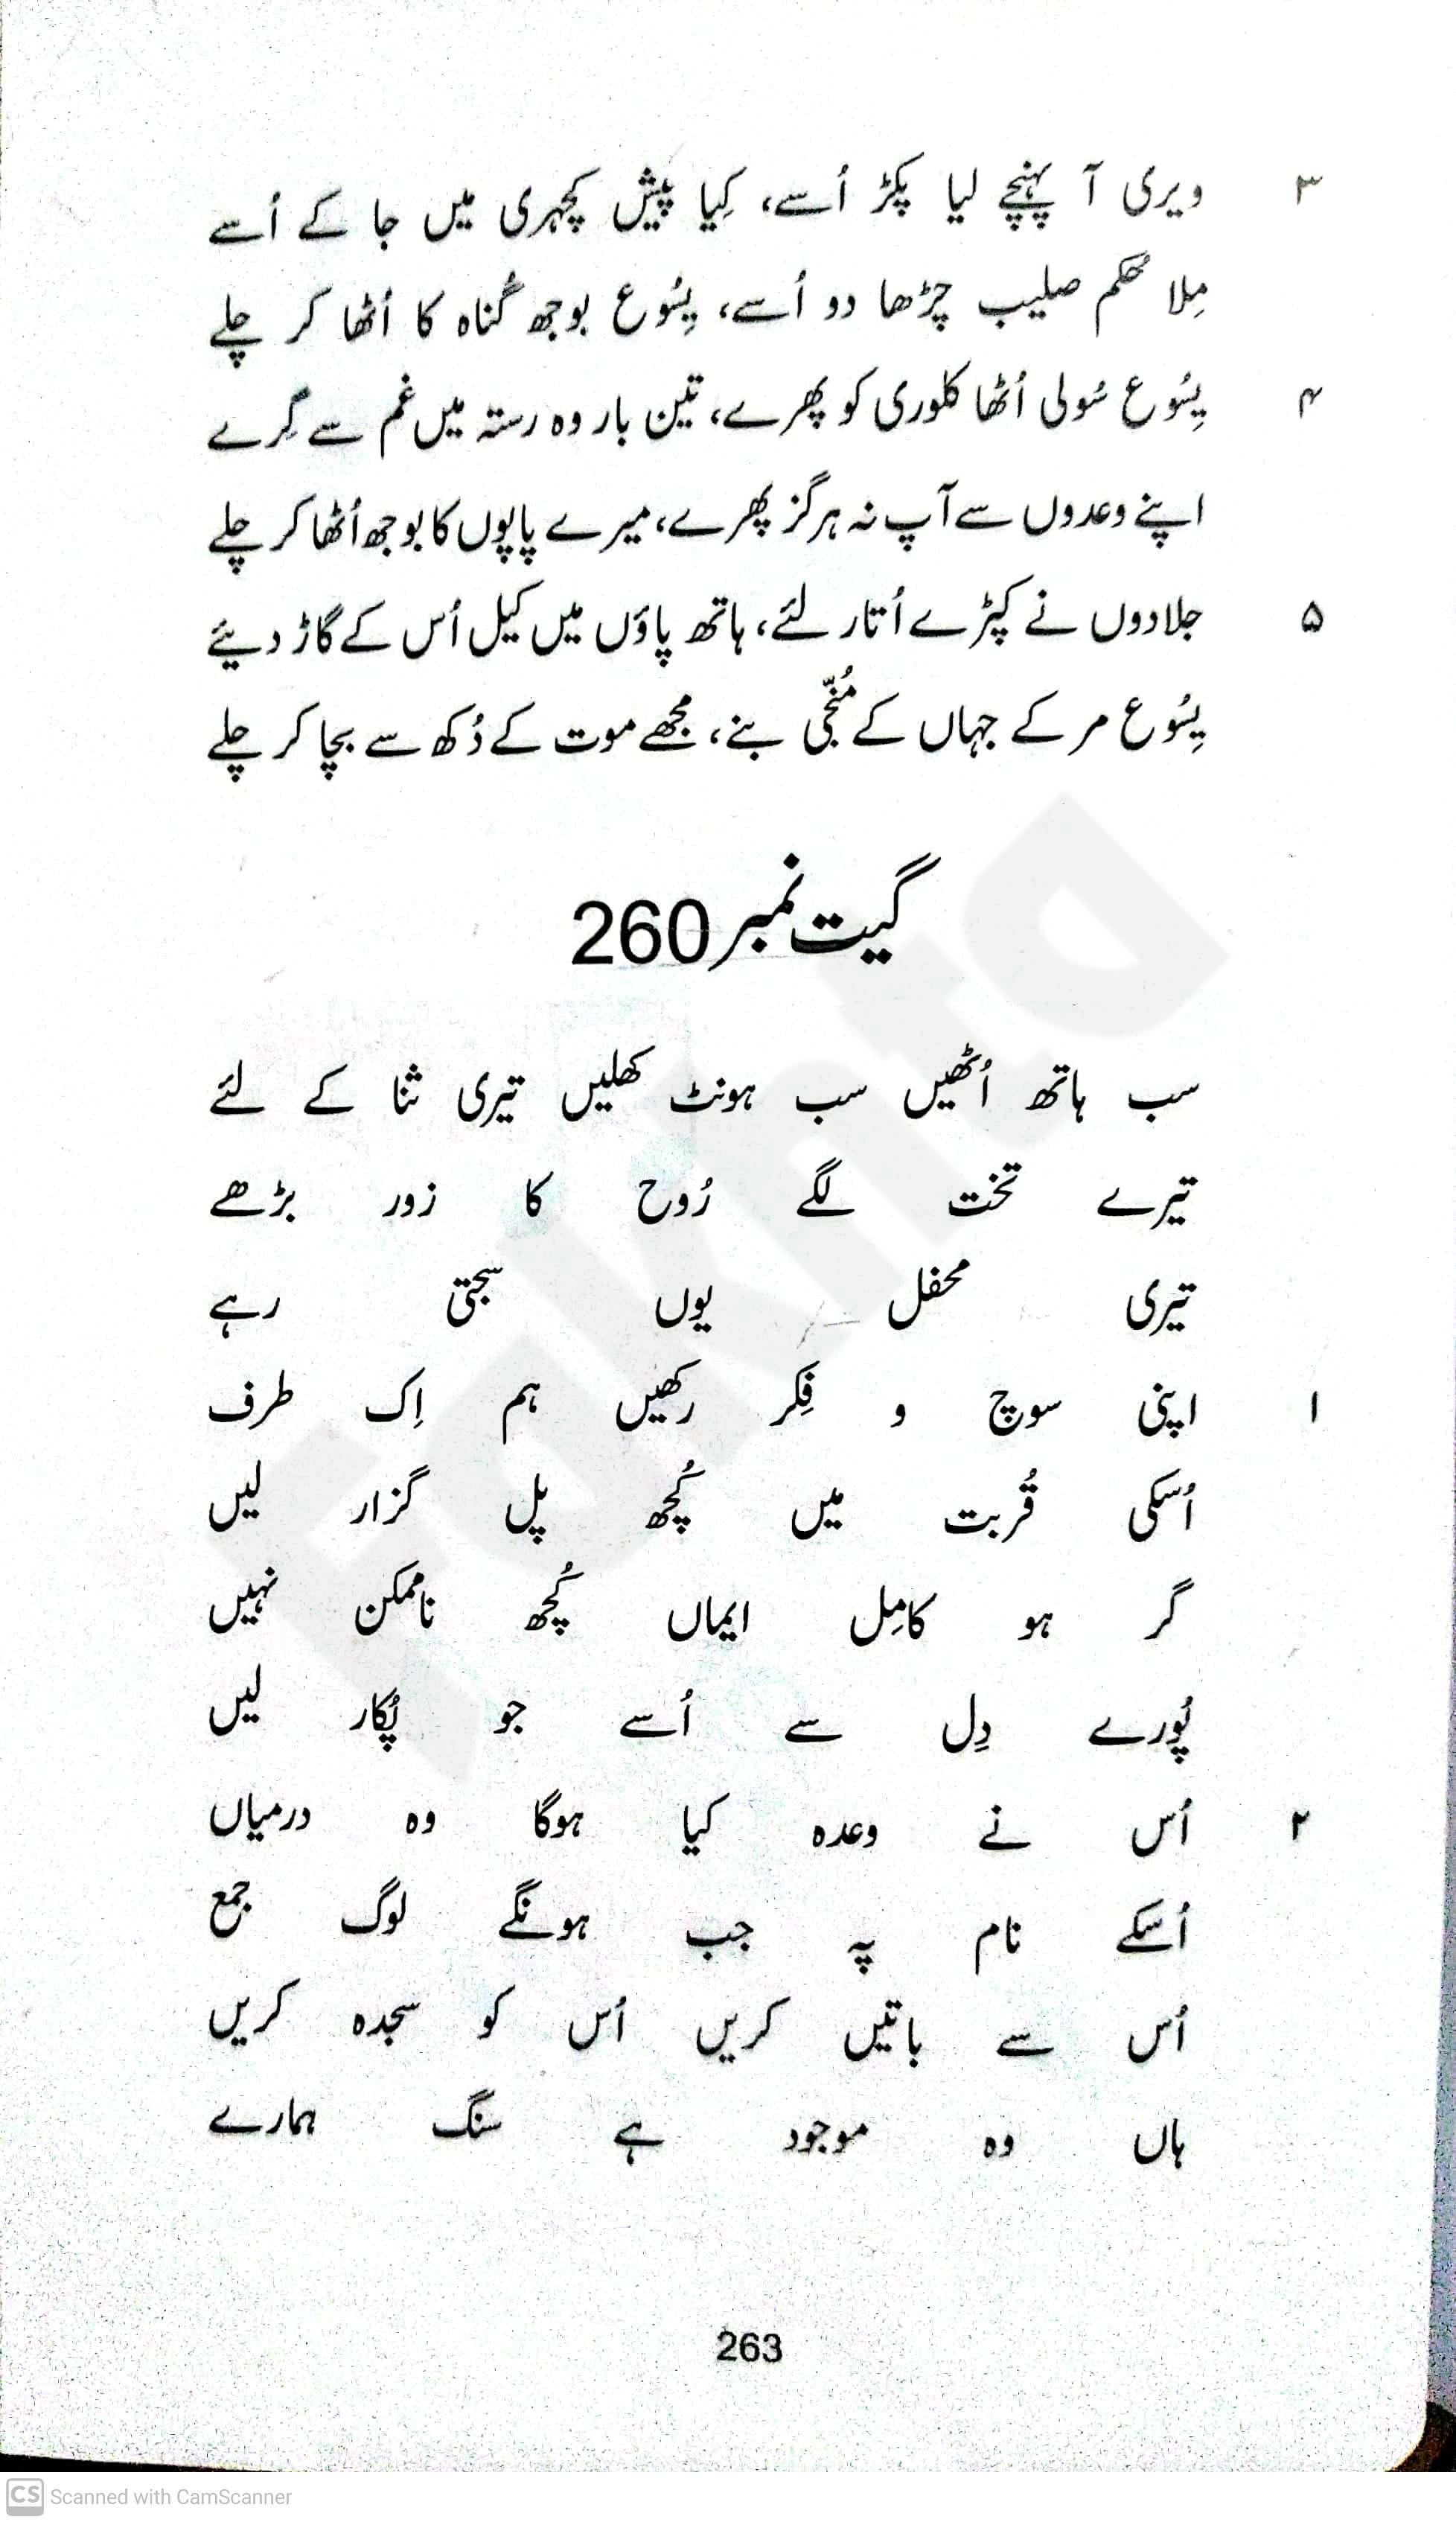 ۳ ویری آ پہنچے لیا پکڑ اُسے، کِیا پیش کچہری میں جا کے اُسے
مِلا حُکم صلیب چڑھا دو اُسے، یِسُوع بوجھ گُناہ کا اُٹھا کر چلے
۴ یِسُوع سُولی اُٹھا کلوری کو پھرے، تین بار وہ رستہ میں غم سے گِرے
اپنے وعدوں سے آپ نہ ہرگز پھرے، میرے پاپوں کا بوجھ اُٹھا کر چلے
۵ جلادوں نے کپڑے اُتار لئے، ہاتھ پاؤں میں کیل اُس کے گاڑ دیئے
یِسُوع مر کے جہاں کے مُنجّی بنے، مجھے موت کے دُکھ سے بچا کر چلے
گیت نمبر 260
سب ہاتھ اُٹھیں سب ہونٹ کھلیں تیری ثنا کے لئے
تیرے تخت لگے رُوح کا زور بڑھے
تیری محفل یوں سجتی رہے
۱ اپنی سوچ و فِکر رکھیں ہم اِک طرف
اُسکی قُربت میں کُچھ پل گزار لیں
گر ہو کامِل ایماں کُچھ ناممکن نہیں
پُورے دِل سے اُسے جو پُکار لیں
۲ اُس نے وعدہ کیا ہوگا وہ درمیاں
اُسکے نام پہ جب ہونگے لوگ جمع
اُس سے باتیں کریں اُس کو سجدہ کریں
ہاں وہ موجود ہے سنگ ہمارے
263
CS Scanned with CamScanner
Fakhta